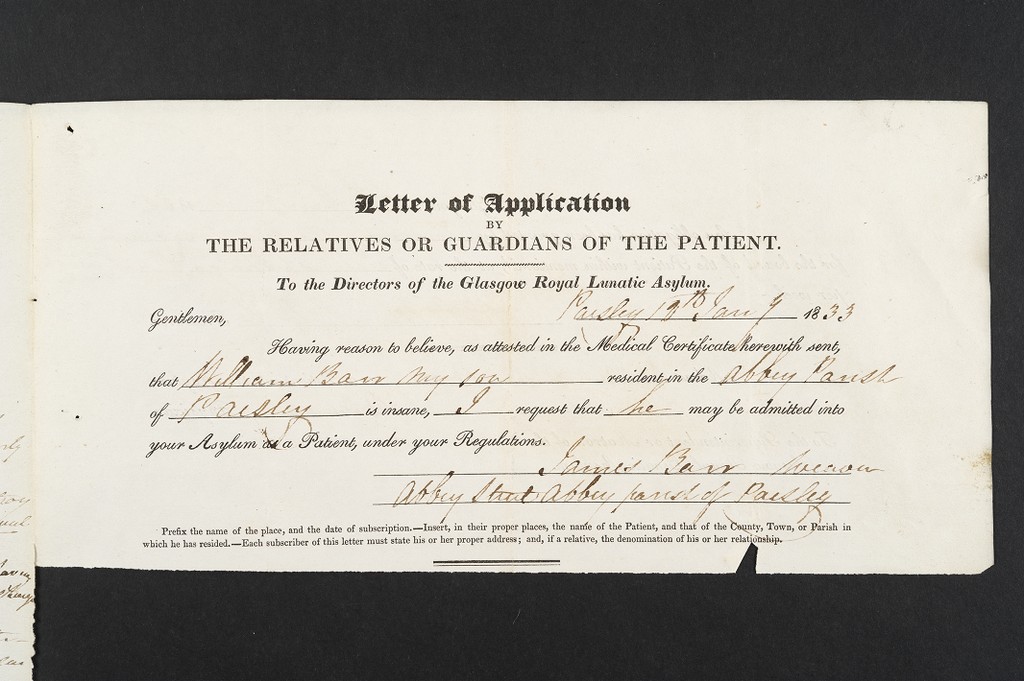 Letter of Application
BY
THE RELATIVES OR GUARDIANS OF THE PATIENT.
To the Directors of the Glasgow Royal Lunatic Asylum.
Paisley 13th Jany 1833
Gentlemen,
Having reason to believe, as attested in the Medical Certificate herewith sent,
that William Barr my son resident in the Abbey Parish
of Paisley is insane, I request that he may be admitted into
your Asylum as a Patient, under your Regulations.
James Barr weaver
Abbey Street Abbey parish of Paisley
Prefix the name of the place, and the date of subscription.—Insert, in their proper places, the name of the Patient, and that of the County, Town, or Parish in
which he has resided.—Each subscriber of this letter must state his or her proper address; and, if a relative, the denomination of his or her relationship.